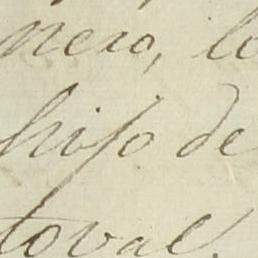 nero, lo
hijo de
toval.